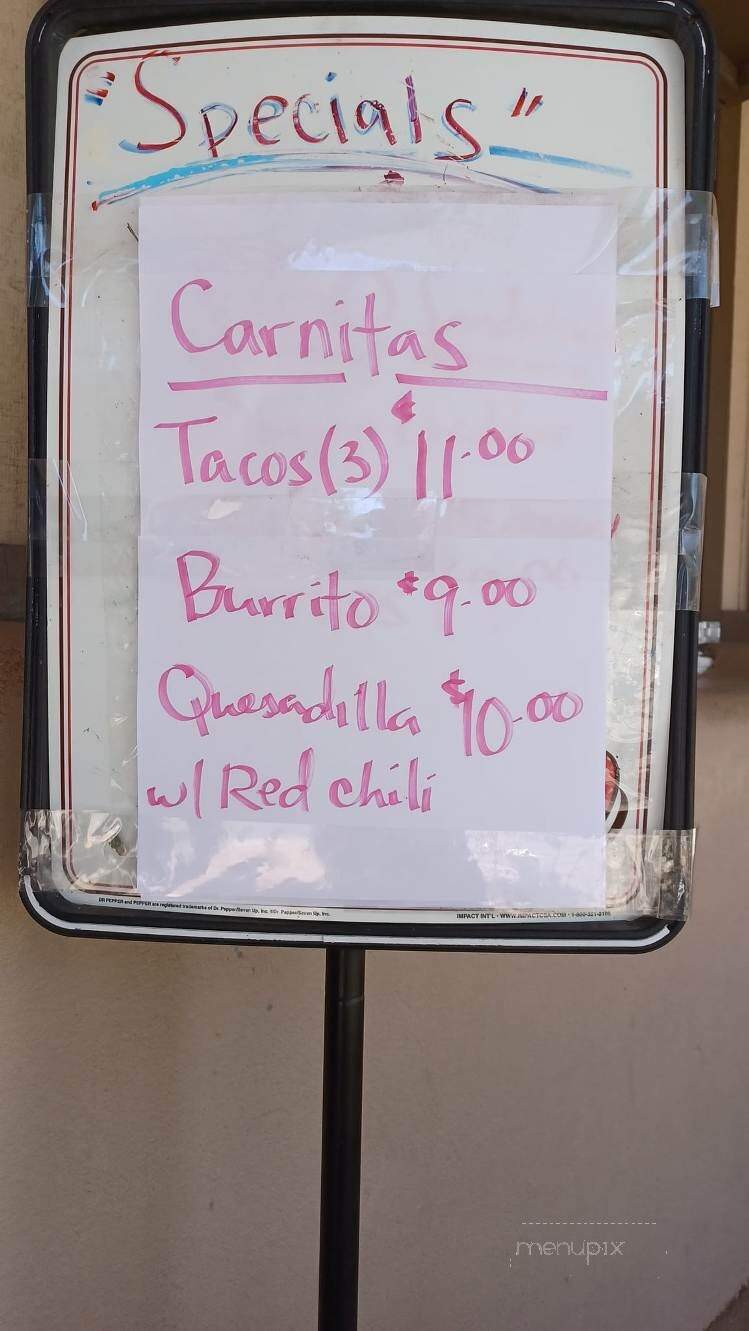 "Specials"
Carnitas
Tacos (3) $11.00
Burrito $9.00
Quesadilla $10.00
w/ Red chili
DR PEPPER and PEPPER are registered trademarks of Dr. Pepper/Seven Up, Inc. ©Dr. Pepper/Seven Up, Inc.
IMPACT INT'L • WWW.IMPACTUSA.COM •
menupix